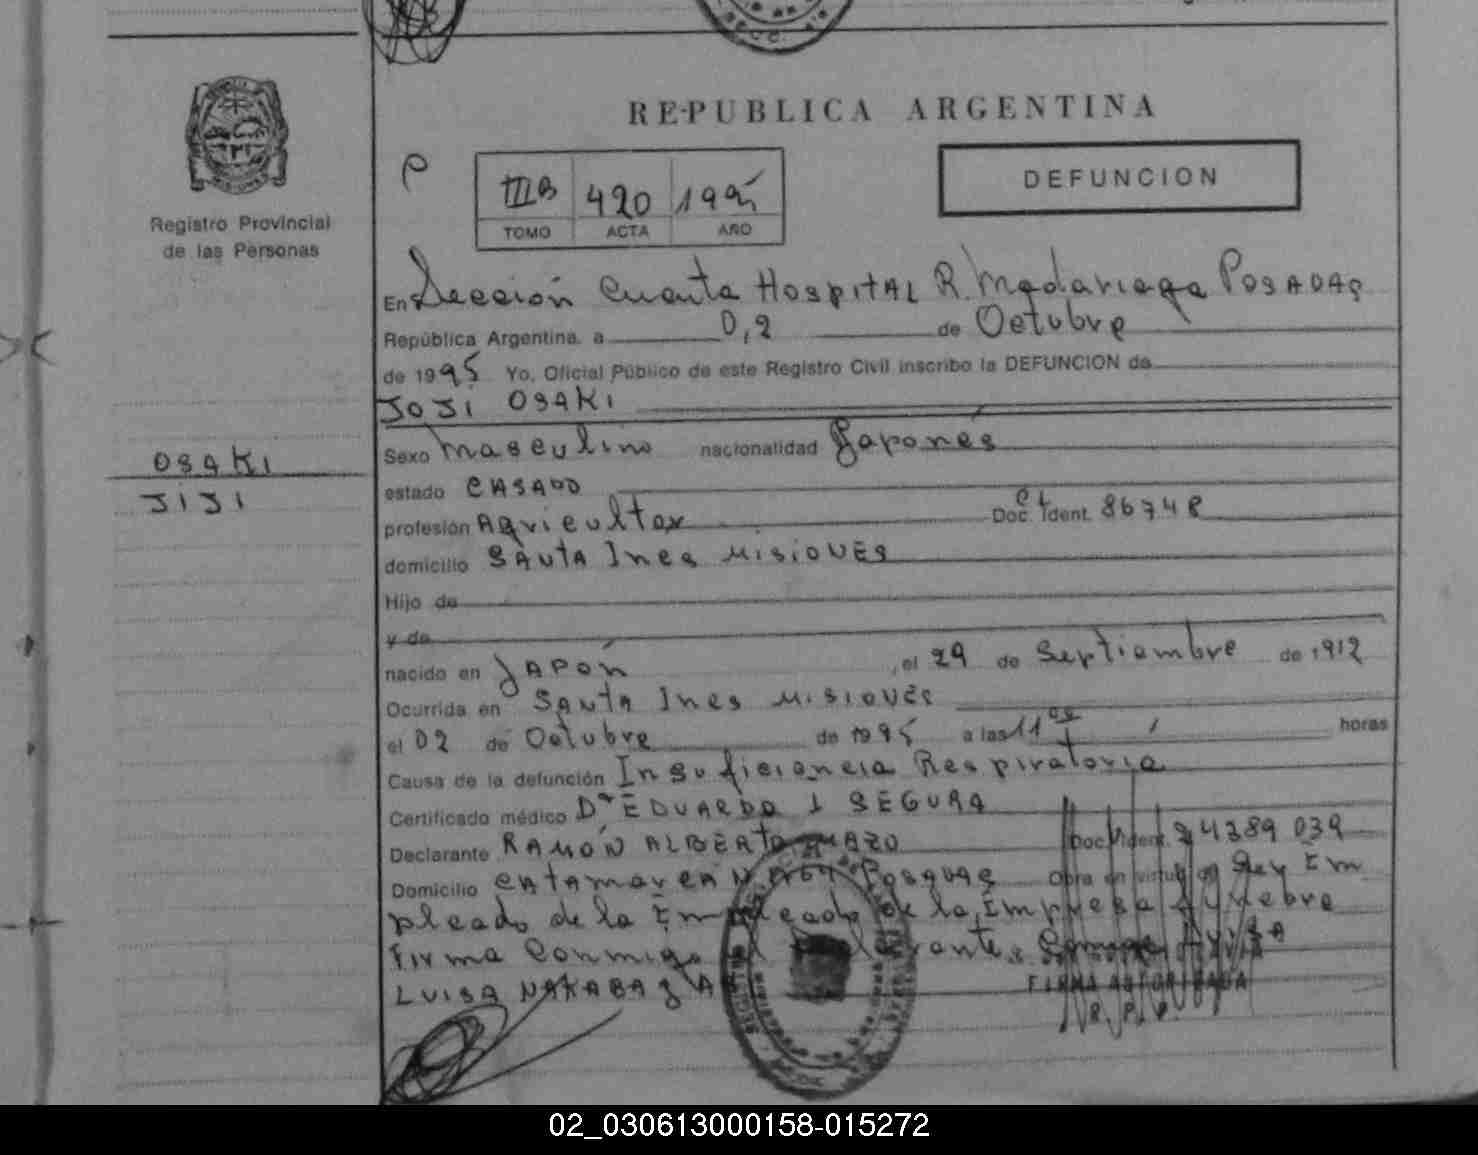 REPUBLICA ARGENTINA
Registro Provincial
de las Personas
IIIB 420 1995
TOMO ACTA AÑO
DEFUNCION
En Sección Cuarta Hospital R. Madariaga Posadas
República Argentina, a 0,2 de Octubre
de 1995 Yo, Oficial Público de este Registro Civil inscribo la DEFUNCION de
JOJI OSAKI
OSAKI
JIJI
Sexo Masculino nacionalidad Japonés
estado CASADO
profesión Agricultor Doc. Ident. 86748
domicilio SANTA Ines MISIONES
Hijo de
y de
nacido en JAPÓN, el 29 de Septiembre de 1912
Ocurrida en SANTA Ines MISIONES
el 02 de Octubre de 1995 a las 11 horas
Causa de la defunción Insuficiencia Respiratoria
Certificado médico Dr EDUARDO J SEGURA
Declarante RAMÓN ALBERTO Doc. Ident. 24389039
Domicilio CATAMARCA Posadas Obra en virtud de Ser Em
pleado de la Empleado de la Empresa Fúnebre
Firma Conmigo
LUISA
FIRMA AUTORIZADA
R. P. P.
02_030613000158-015272